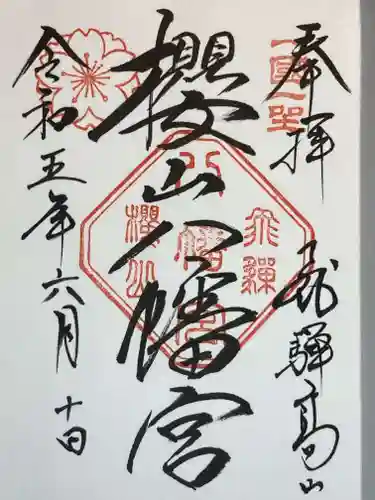 奉拝
飛騨高山
櫻山八幡宮
令和五年六月十日
一国一社
飛騨
八幡宮
櫻山